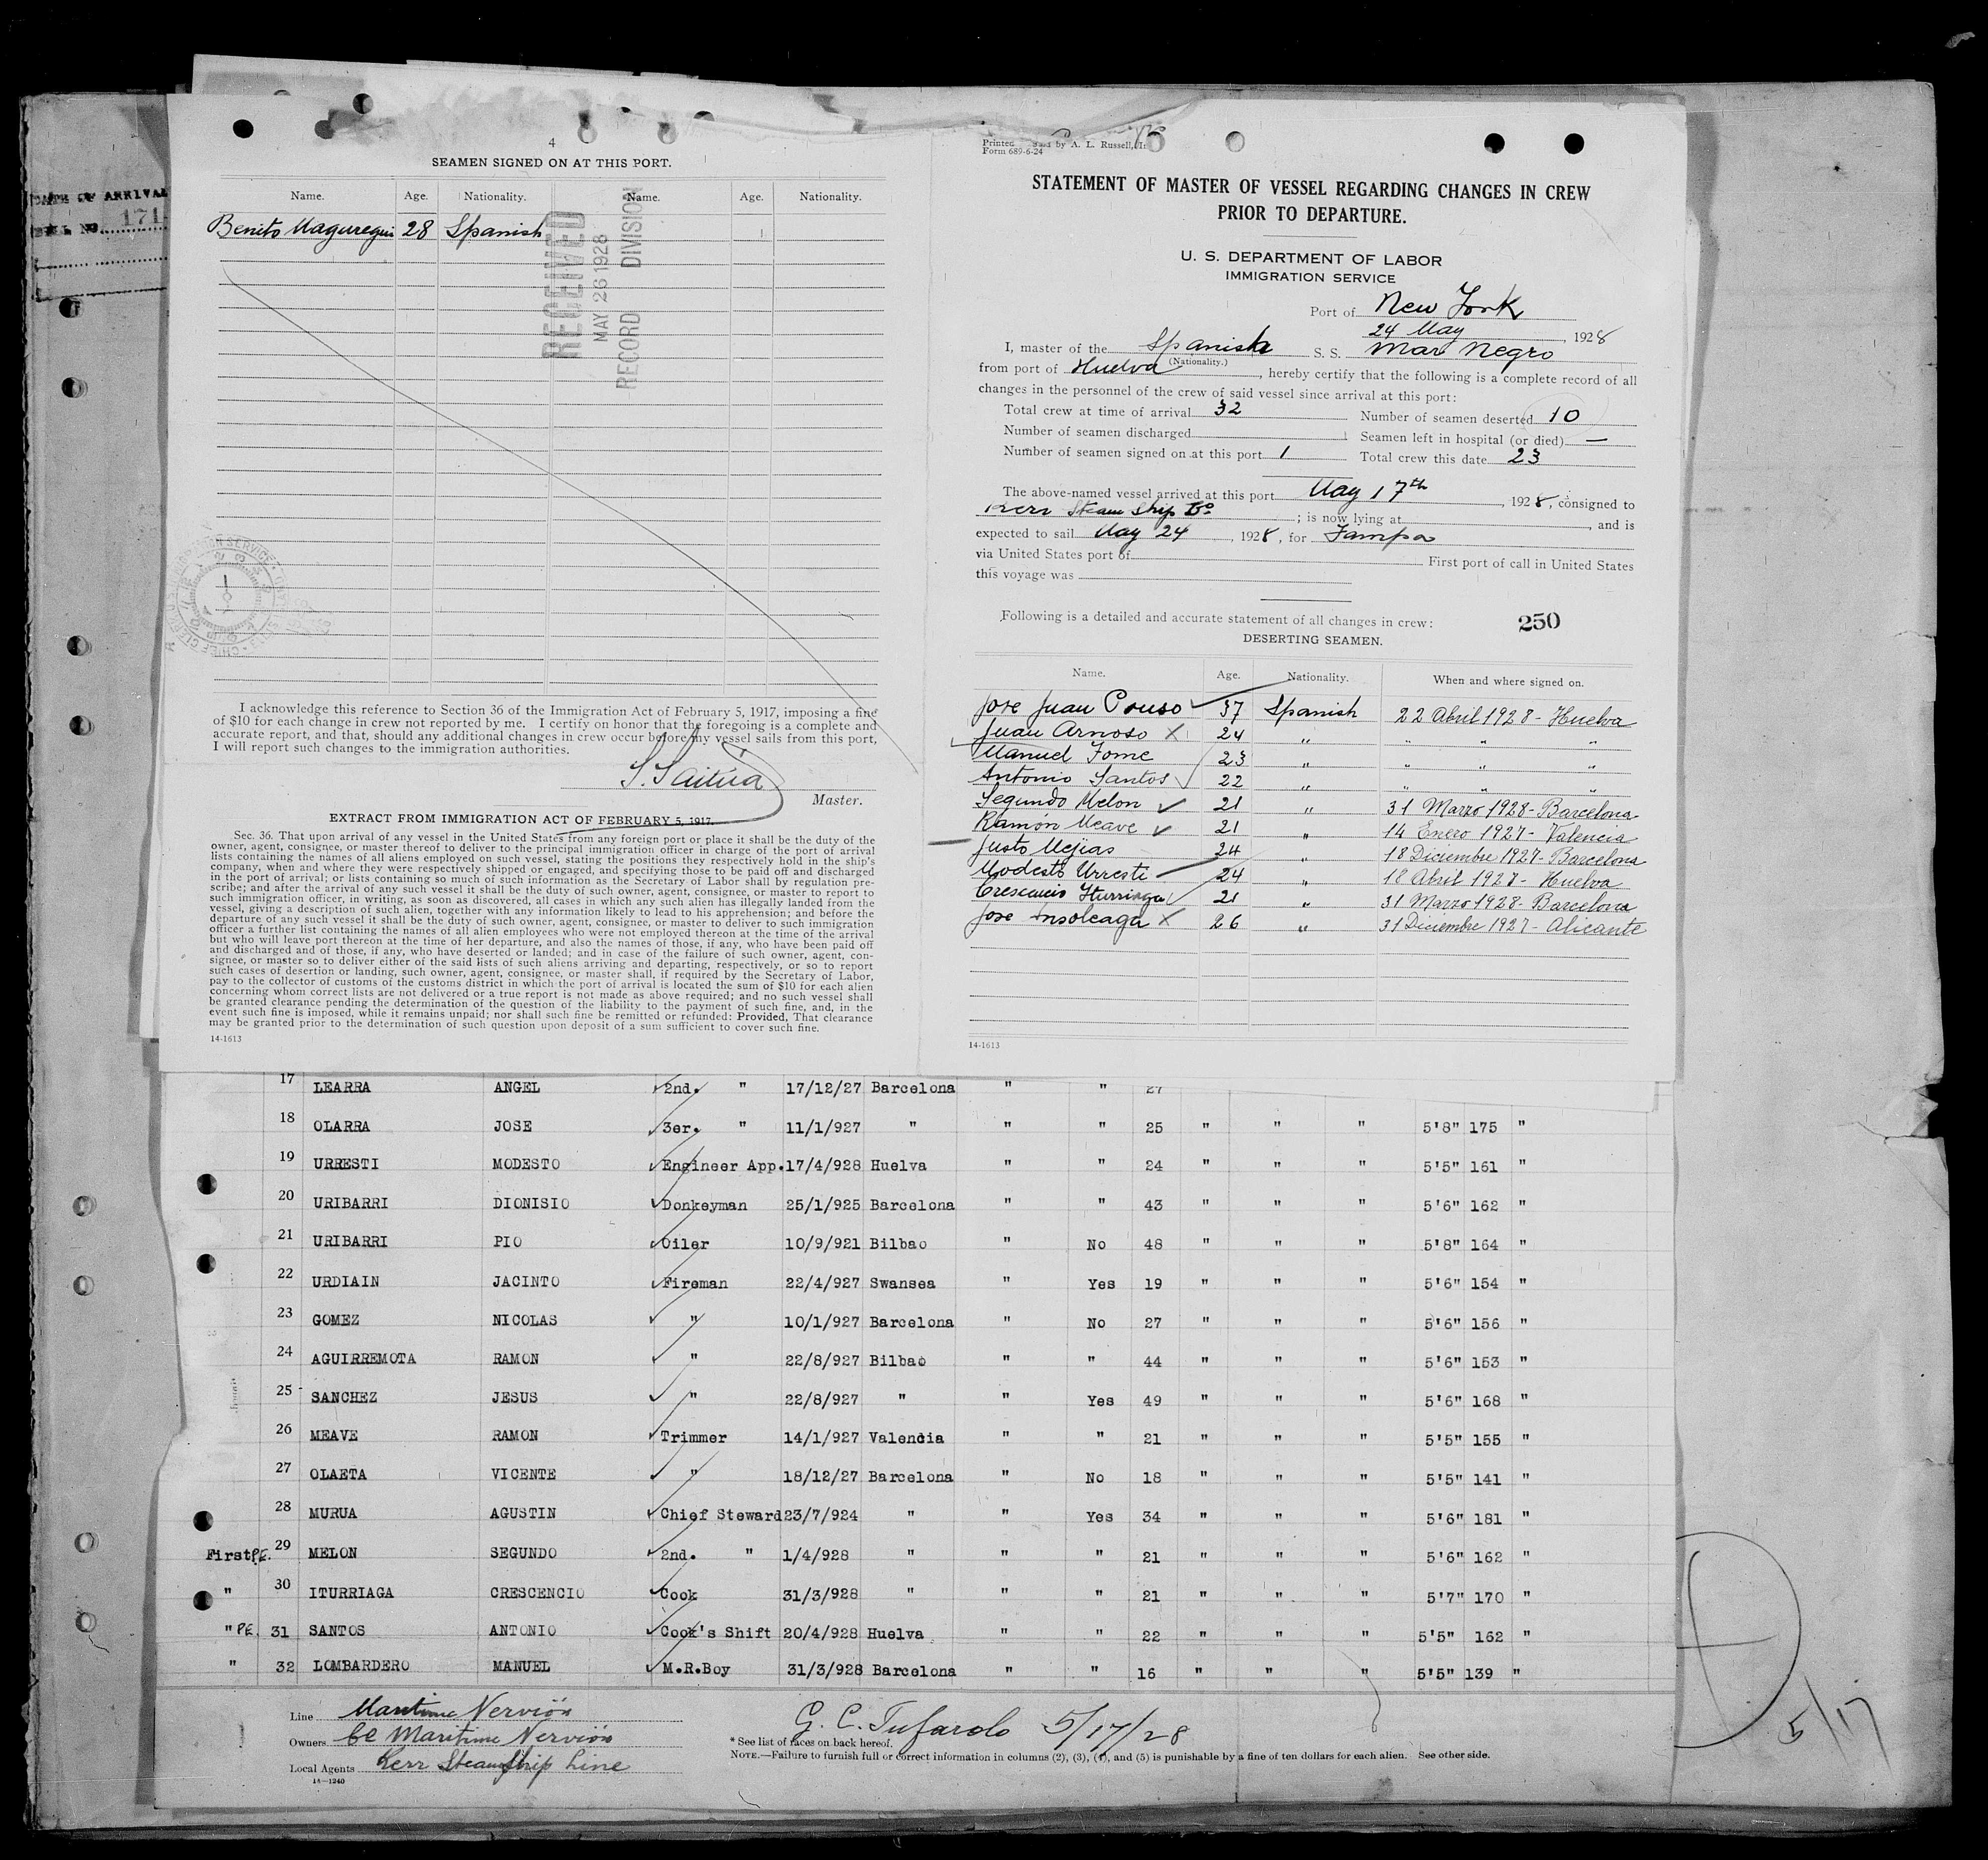 DATE OF ARRIVAL
171
4
SEAMEN SIGNED ON AT THIS PORT.
Name. Age. Nationality. Name. Age. Nationality.
Benito Maguregui 28 Spanish
RECEIVED
MAY 26 1928
RECORD DIVISION
I acknowledge this reference to Section 36 of the Immigration Act of February 5, 1917, imposing a fine
of $10 for each change in crew not reported by me. I certify on honor that the foregoing is a complete and
accurate report, and that, should any additional changes in crew occur before my vessel sails from this port,
I will report such changes to the immigration authorities.
Master.
EXTRACT FROM IMMIGRATION ACT OF FEBRUARY 5, 1917.
Sec. 36. That upon arrival of any vessel in the United States from any foreign port or place it shall be the duty of the
owner, agent, consignee, or master thereof to deliver to the principal immigration officer in charge of the port of arrival
lists containing the names of all aliens employed on such vessel, stating the positions they respectively hold in the ship's
company, when and where they were respectively shipped or engaged, and specifying those to be paid off and discharged
in the port of arrival; or lists containing so much of such information as the Secretary of Labor shall by regulation pre-
scribe; and after the arrival of any such vessel it shall be the duty of such owner, agent, consignee, or master to report to
such immigration officer, in writing, as soon as discovered, all cases in which any such alien has illegally landed from the
vessel, giving a description of such alien, together with any information likely to lead to his apprehension; and before the
departure of any such vessel it shall be the duty of such owner, agent, consignee, or master to deliver to such immigration
officer a further list containing the names of all alien employees who were not employed thereon at the time of the arrival
but who will leave port thereon at the time of her departure, and also the names of those, if any, who have been paid off
and discharged and of those, if any, who have deserted or landed; and in case of the failure of such owner, agent, con-
signee, or master so to deliver either of the said lists of such aliens arriving and departing, respectively, or so to report
such cases of desertion or landing, such owner, agent, consignee, or master shall, if required by the Secretary of Labor,
pay to the collector of customs of the customs district in which the port of arrival is located the sum of $10 for each alien
concerning whom correct lists are not delivered or a true report is not made as above required; and no such vessel shall
be granted clearance pending the determination of the question of the liability to the payment of such fine, and, in the
event such fine is imposed, while it remains unpaid; nor shall such fine be remitted or refunded: Provided, That clearance
may be granted prior to the determination of such question upon deposit of a sum sufficient to cover such fine.
14-1613
Printed by A. L. Russell,
Form 689-6-24
STATEMENT OF MASTER OF VESSEL REGARDING CHANGES IN CREW
PRIOR TO DEPARTURE.
U. S. DEPARTMENT OF LABOR
IMMIGRATION SERVICE
Port of New York
24 May, 1928
I, master of the Spanish S. S. Mar Negro
(Nationality.)
from port of Huelva, hereby certify that the following is a complete record of all
changes in the personnel of the crew of said vessel since arrival at this port:
Total crew at time of arrival 32 Number of seamen deserted 10
Number of seamen discharged Seamen left in hospital (or died) —
Number of seamen signed on at this port 1 Total crew this date 23
The above-named vessel arrived at this port May 17th, 1928, consigned to
Kerr Steam Ship Co; is now lying at, and is
expected to sail May 24, 1928, for Tampa
via United States port of First port of call in United States
this voyage was
Following is a detailed and accurate statement of all changes in crew: 250
DESERTING SEAMEN.
Name. Age. Nationality. When and where signed on.
Jose Juan Pouso 37 Spanish 22 Abril 1928 - Huelva
Juan Arnoso X 24 " " " "
Manuel Fome 23 " " " "
Antonio Santos 22 " " " "
Segundo Melon 21 " 31 Marzo 1928 - Barcelona
Ramón Meave 21 " 14 Enero 1927 - Valencia
Justo Mejias 24 " 18 Diciembre 1927 - Barcelona
Modesto Urresti 24 " 18 Abril 1928 - Huelva
Crescencio Iturriaga 21 " 31 Marzo 1928 - Barcelona
Jose Insoleaga X 26 " 31 Diciembre 1927 - Alicante
14-1613
17 LEARRA ANGEL 2nd. " 17/12/27 Barcelona " " 27
18 OLARRA JOSE 3er. " 11/1/927 " " " 25 " " " 5'8" 175 "
19 URRESTI MODESTO Engineer App. 17/4/928 Huelva " " 24 " " " 5'5" 161 "
20 URIBARRI DIONISIO Donkeyman 25/1/925 Barcelona " " 43 " " " 5'6" 162 "
21 URIBARRI PIO Oiler 10/9/921 Bilbao " No 48 " " " 5'8" 164 "
22 URDIAIN JACINTO Fireman 22/4/927 Swansea " Yes 19 " " " 5'6" 154 "
23 GOMEZ NICOLAS " 10/1/927 Barcelona " No 27 " " " 5'6" 156 "
24 AGUIRREMOTA RAMON " 22/8/927 Bilbao " " 44 " " " 5'6" 153 "
25 SANCHEZ JESUS " 22/8/927 " " Yes 49 " " " 5'6" 168 "
26 MEAVE RAMON Trimmer 14/1/927 Valencia " " 21 " " " 5'5" 155 "
27 OLAETA VICENTE " 18/12/27 Barcelona " No 18 " " " 5'5" 141 "
28 MURUA AGUSTIN Chief Steward 23/7/924 " " Yes 34 " " " 5'6" 181 "
First P.E. 29 MELON SEGUNDO 2nd. " 1/4/928 " " " 21 " " " 5'6" 162 "
" 30 ITURRIAGA CRESCENCIO Cook 31/3/928 " " " 21 " " " 5'7" 170 "
" P.E. 31 SANTOS ANTONIO Cook's Shift 20/4/928 Huelva " " 22 " " " 5'5" 162 "
" 32 LOMBARDERO MANUEL M.R.Boy 31/3/928 Barcelona " " 16 " " " 5'5" 139 "
Line Maritime Nervión
Owners Ce Maritime Nervión
Local Agents Kerr SteamShip Line
14-1240
G. C. Tufarolo 5/17/28
* See list of races on back hereof.
NOTE.—Failure to furnish full or correct information in columns (2), (3), (4), and (5) is punishable by a fine of ten dollars for each alien. See other side.
5/17